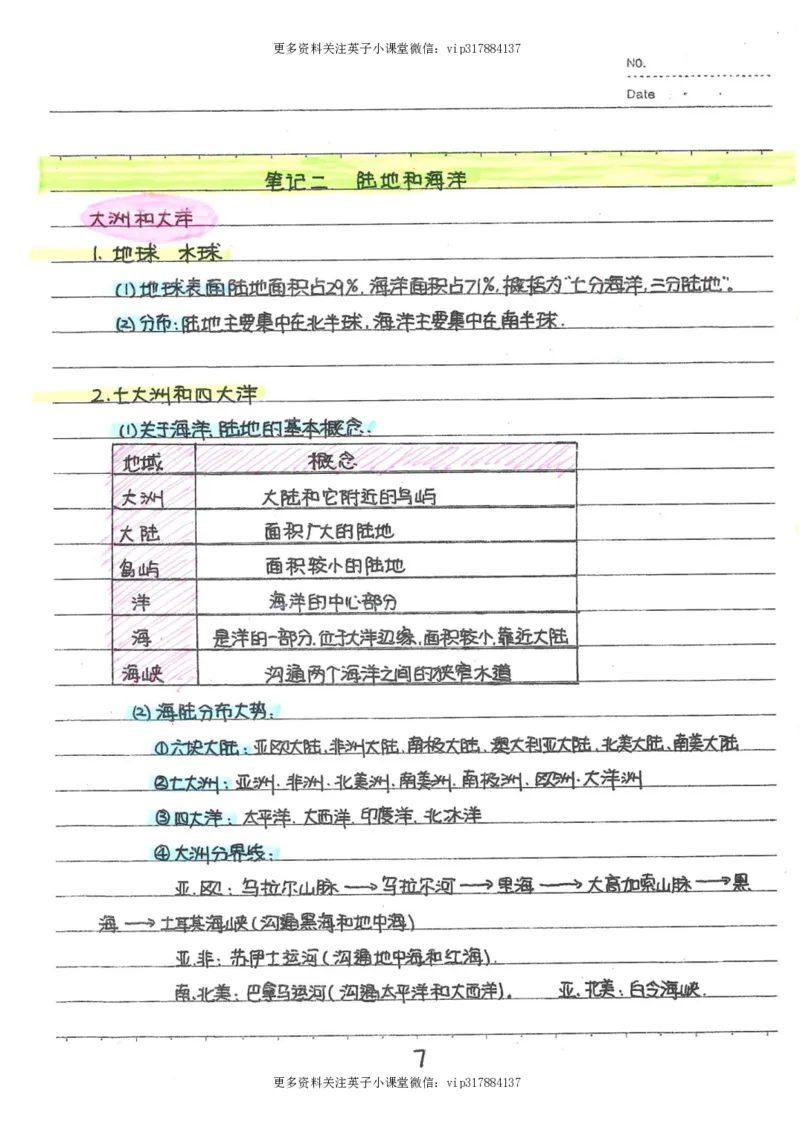 更多资料关注英子小课堂微信：vip317884137
NO.
Date
笔记二 陆地和海洋
大洲和大洋
1. 地球 水球
(1)地球表面陆地面积占29%，海洋面积占71%，概括为“七分海洋,三分陆地”。
(2)分布:陆地主要集中在北半球,海洋主要集中在南半球.
2.七大洲和四大洋
(1)关于海洋、陆地的基本概念.
地域 概念
大洲 大陆和它附近的岛屿
大陆 面积广大的陆地
岛屿 面积较小的陆地
洋 海洋的中心部分
海 是洋的一部分,位于大洋边缘,面积较小,靠近大陆
海峡 沟通两个海洋之间的狭窄水道
(2)海陆分布大势:
①六块大陆:亚欧大陆,非洲大陆,南极大陆、澳大利亚大陆,北美大陆、南美大陆
②七大洲:亚洲.非洲.北美洲.南美洲.南极洲.欧洲.大洋洲
③四大洋:太平洋.大西洋.印度洋.北冰洋
④大洲分界线:
亚.欧:乌拉尔山脉→乌拉尔河→里海→大高加索山脉→黑
海→土耳其海峡(沟通黑海和地中海)
亚.非:苏伊士运河(沟通地中海和红海).
南.北美:巴拿马运河(沟通太平洋和大西洋)。 亚、北美:白令海峡.
7
更多资料关注英子小课堂微信：vip317884137